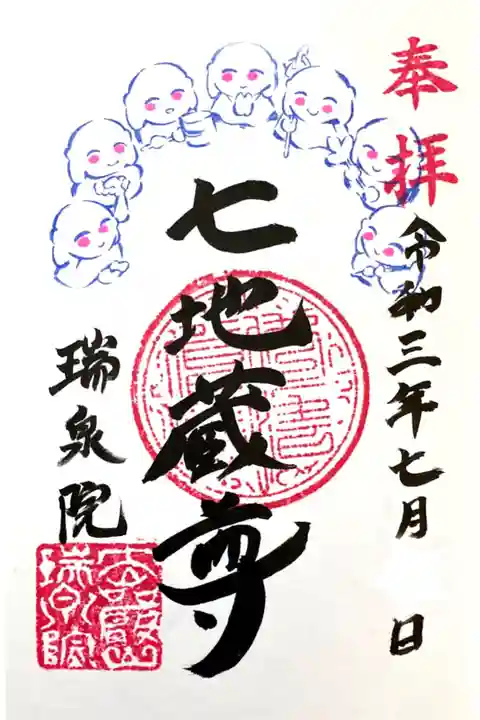 奉拝
令和三年七月 日
七地蔵尊
瑞泉院